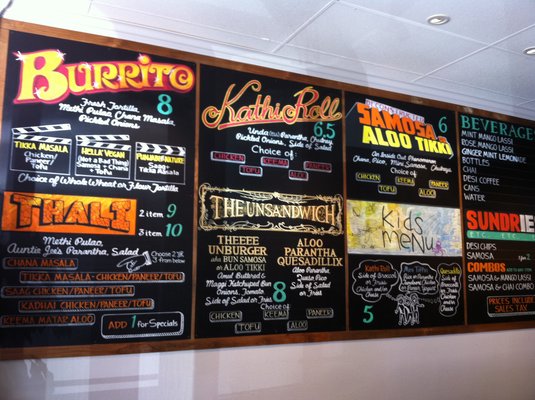 BURRITO 8
Fresh Tortilla
Methi Pulao, Chana Masala
Pickled Onions
TIKKA MASALA
Chicken/
Paneer/
Tofu
HELLA VEGAN
(Not a Bad Thing)
Samosa + Chana
+ Tofu
PUNJABI BY NATURE
Tikka Masala
Choice of Whole Wheat or Flour Tortilla
THALI
2 item 9
3 item 10
Methi Pulao,
Auntie Joe's Parantha, Salad
Choose 2/3
from below
CHANA MASALA
TIKKA MASALA-CHICKEN/PANEER/TOFU
SAAG CHICKEN/PANEER/TOFU
KADHAI CHICKEN/PANEER/TOFU
KEEMA MATAR ALOO
ADD 1 for Specials
Kathi Roll
6.5
Pickled Onions, Side of Salad
Choice of:
CHICKEN
KEEMA
ALOO
TOFU
PANEER
THE UNSANDWICH
THEEEE
UNBURGER
AKA BUN SAMOSA
or ALOO TIKKI
Amul Butter'd
Maggi Ketchuped Bun
Onions, Tomato
Side of Salad or Fries
ALOO
PARANTHA
QUESADILLIX
Aloo Parantha
Side of Salad
or Fries
8
Choice of
CHICKEN
KEEMA
PANEER
TOFU
ALOO
DECONSTRUCTED
SAMOSA/ 6
ALOO TIKKI
An Inside Out Phenomenon
Chana, Pico, Mini Samosa, Chutneys
Choice of:
CHICKEN
PANEER
TOFU
KEEMA
Kids
menu
Kathi Roll
Side of
Broccoli
or Fries
Quesadilla
Side of
5
BEVERAGE
MINT MANGO LASSI
ROSE MANGO LASSI
GINGER MINT LEMONADE
BOTTLES
CHAI
DESI COFFEE
CANS
WATER
SUNDRIE
ETC. ETC.
DESI CHIPS
SAMOSA
COMBOS
SAMOSA & MANGO
SAMOSA & CHAI COMBO
PRICES INCLUDE
SALES TAX